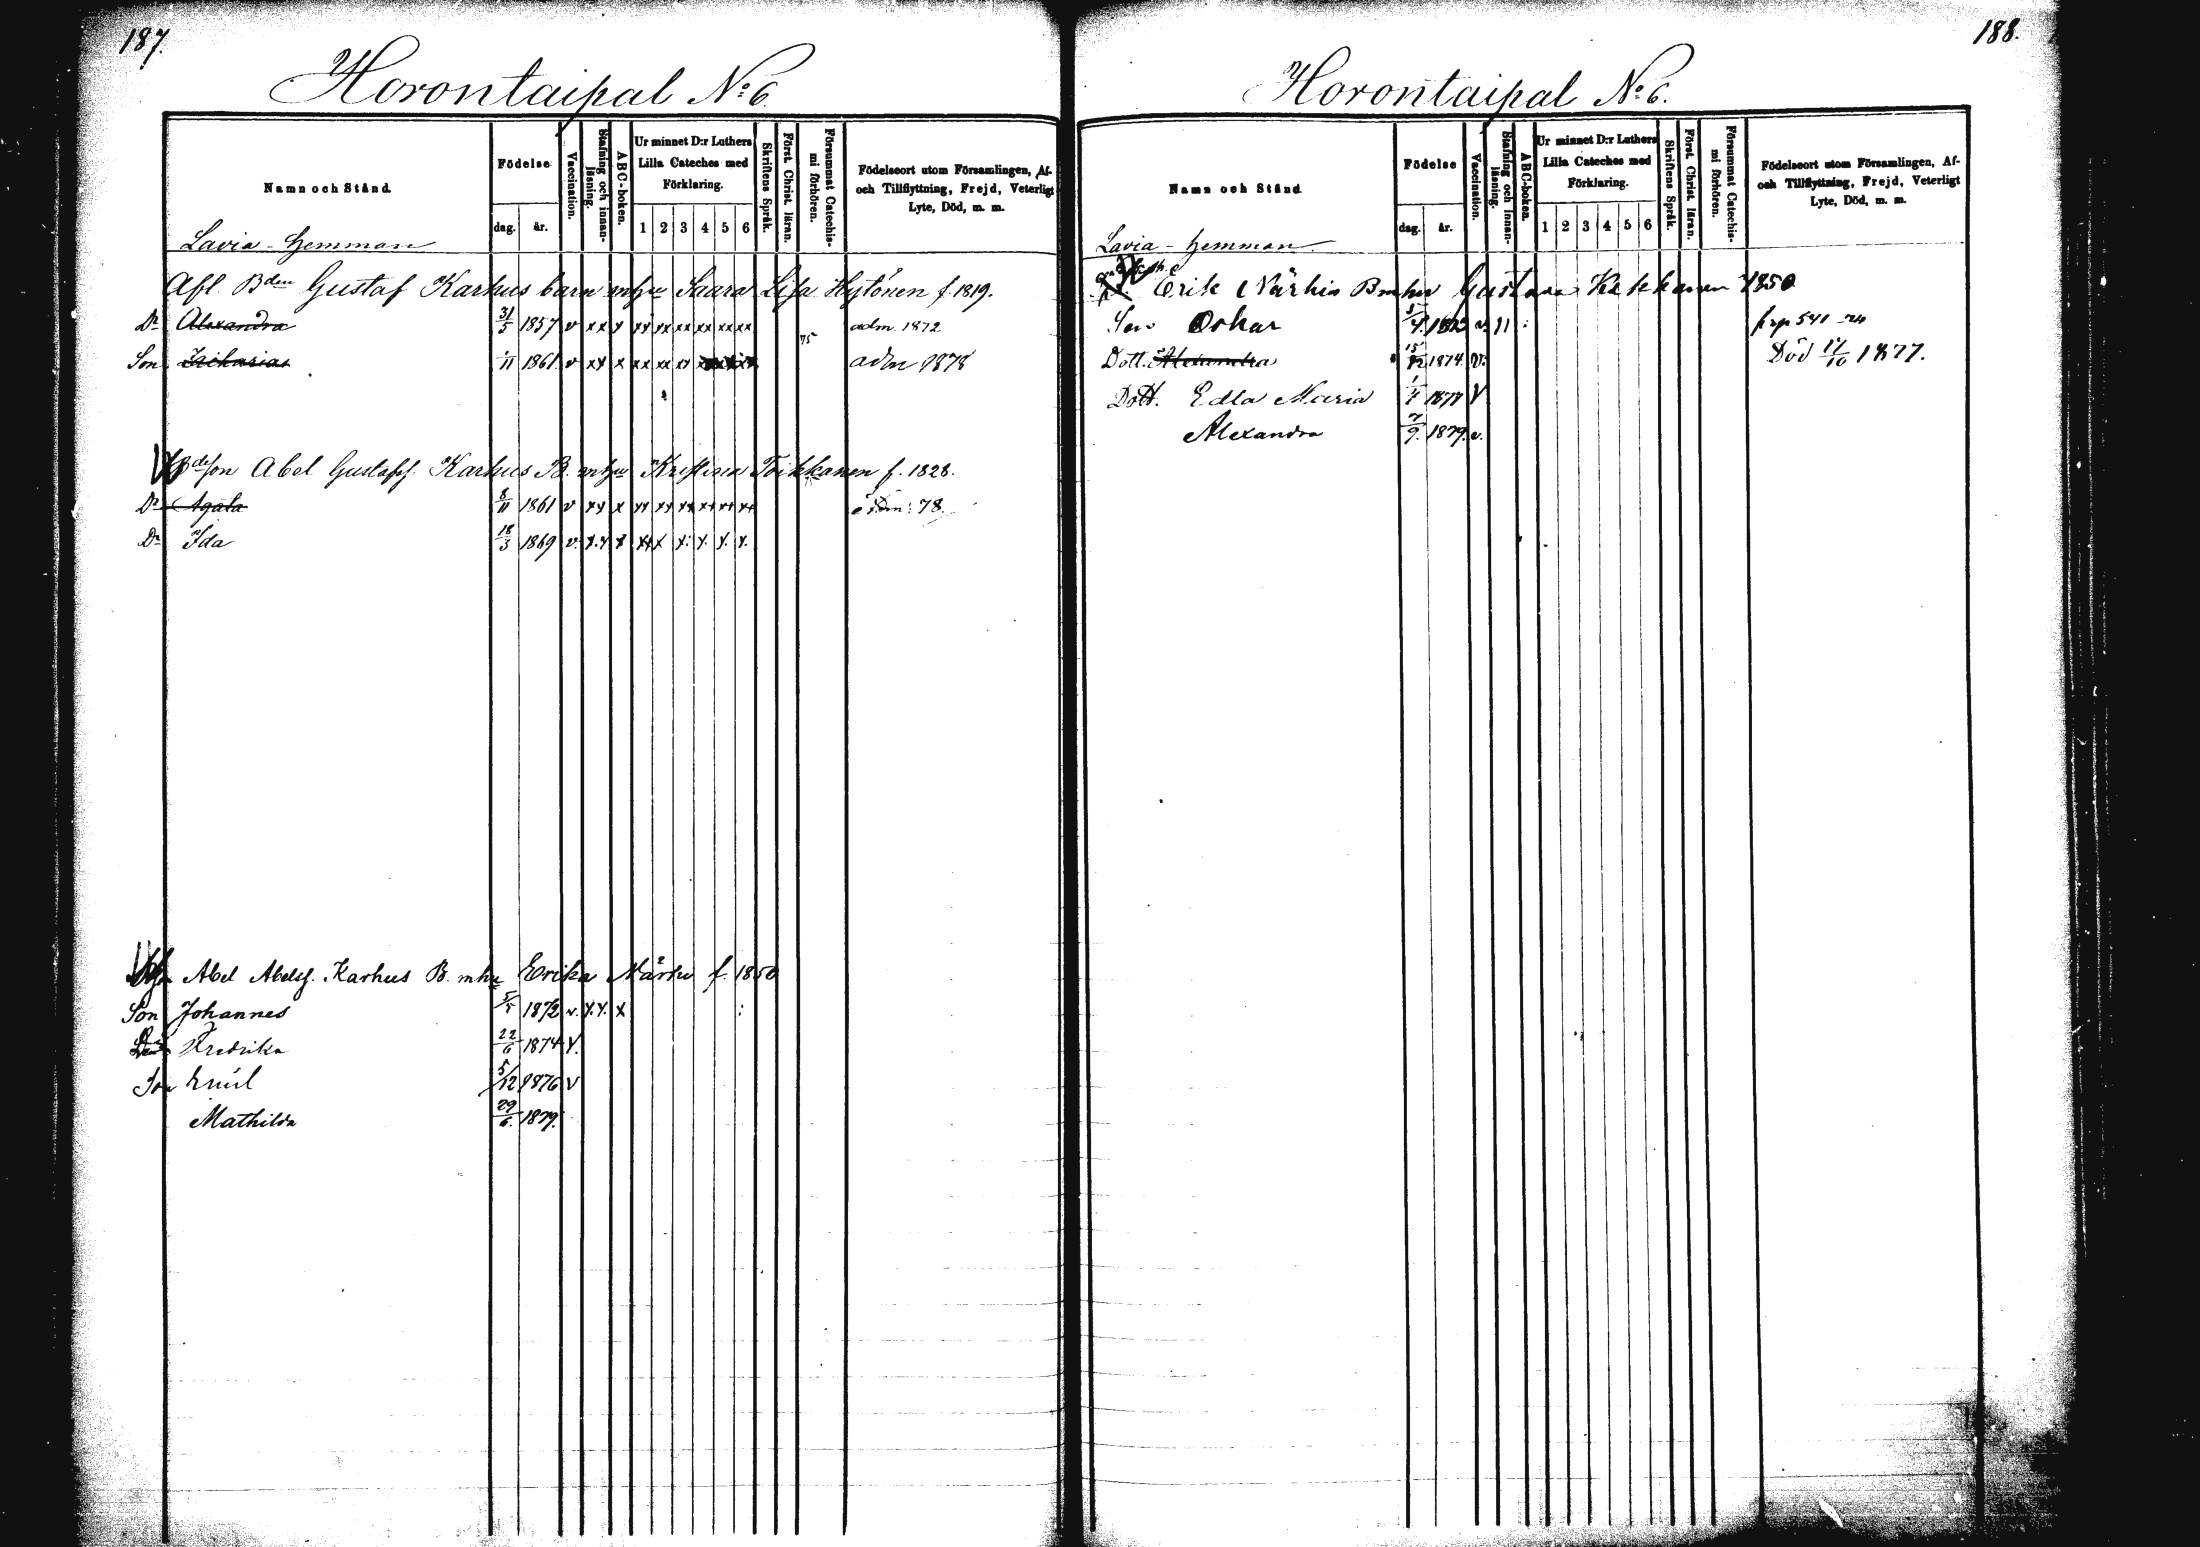 187.
Horontaipal No 6.
Namn och Stånd.
Födelse
dag. år.
Vaccination.
Stafning och innan-läsning.
ABC-boken.
Ur minnet D:r Luthers Lilla Cateches med Förklaring.
1 2 3 4 5 6
Skriftens Språk.
Först. Christ. läran.
Försummat Catechis-mi förhören.
Födelseort utom Församlingen, Af- och Tillflyttning, Frejd, Veterligt Lyte, Död, m. m.
Lavia - hemman
Afl. Bden Gustaf Karhus barn mhu Saara Lisa Hytönen f. 1819.
Dr Alexandra 31/5 1857 v xx x xx xx xx xx xx xx adm. 1872
75
Son /11 1861 v xx x xx xx xx adm 1878
Bdeson Abel Gustafsf. Karhus B. mhu Kristina Toikkanen f. 1828.
Dr Agata 8/11 1861 v xx x xx xx xx xx xx xx adm: 78.
Dr Ida 18/3 1869 v. x.x x xx x x. x. x. x.
Abel Abelsf. Karhus B. mhu Erika Närhi f. 1850
Son Johannes 5/5 1872 v. x.x. x
Fredrika 22/6 1874 v.
Son Emil 5/12 1876 v
Mathilda 29/6. 1879.
188.
Horontaipal No 6.
Namn och Stånd
Födelse
dag. år.
Vaccination.
Stafning och innan-läsning.
ABC-boken.
Ur minnet D:r Luthers Lilla Cateches med Förklaring.
1 2 3 4 5 6
Skriftens Språk.
Först. Christ. läran.
Försummat Catechis-mi förhören.
Födelseort utom Församlingen, Af- och Tillflyttning, Frejd, Veterligt Lyte, Död, m. m.
Lavia - hemman
Erik Närhis B mhu Gustava Kekkonen 1850
Son Oskar
Dott. Alexandra 15/12 1874. v. Död 17/10 1877.
Dott. Edla Maria 1878 v
Alexandra 7/9. 1879. v.